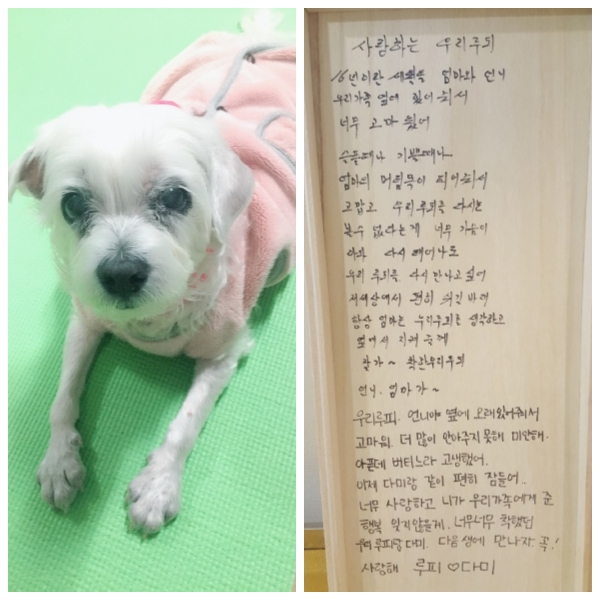 사랑하는 우리루피
16년이란 세월을 엄마와 언니
우리가족 옆에 있어줘서
너무 고마웠어
슬플때나 기쁠때나..
엄마의 버팀목이 되어줘서
고맙고 우리루피를 다시는
볼수 없다는게 너무 가슴이
아파 다시 태어나도
우리 루피를 다시 만나고 싶어
저세상에서 편히 쉬길 바래
항상 엄마는 우리루피를 생각하고
옆에서 지켜줄게
잘가~ 착한우리루피
언니. 엄마가~
우리루피. 언니야 옆에 오래있어줘서
고마워. 더 많이 안아주지 못해 미안해.
아픈데 버티느라 고생했어.
이제 다미랑 같이 편히 잠들어.
너무 사랑하고 니가 우리가족에게 준
행복 잊지않을게. 너무너무 착했던
우리 루피랑 다미. 다음 생에 만나자. 꼭!
사랑해 루피♡다미